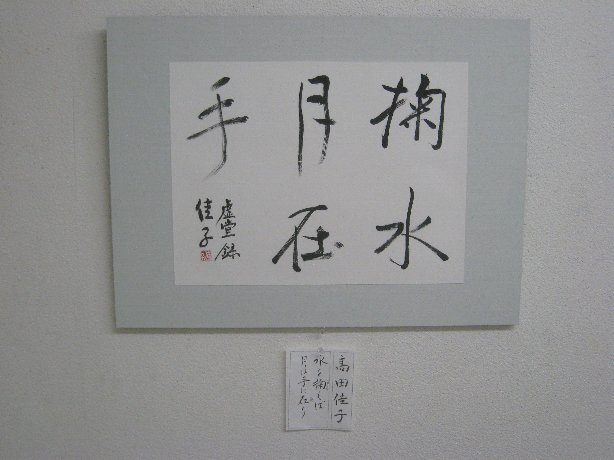 掬水
月在
手
虚堂録
佳子
高田佳子
水を掬すれば
月は手に在り